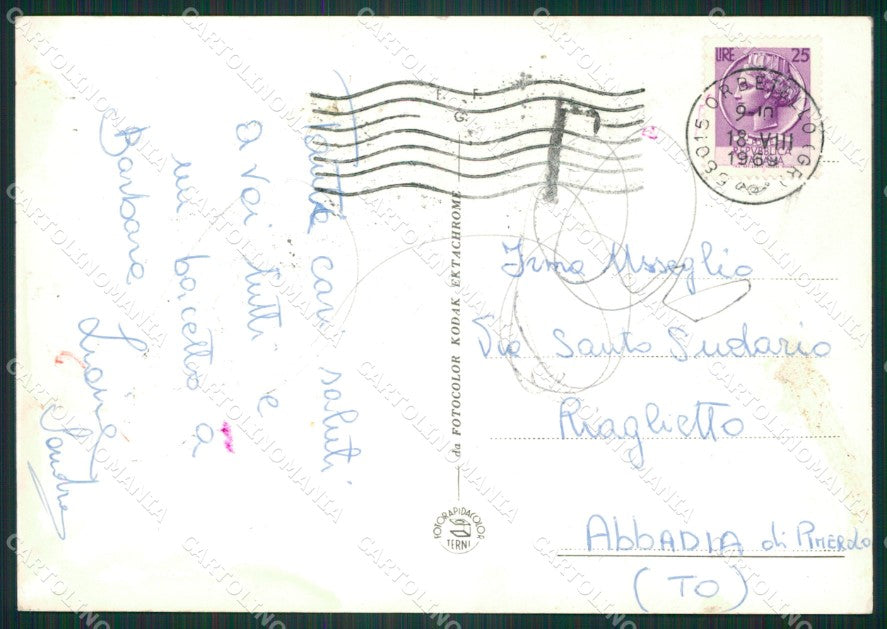 LIRE 25
POSTE
REPUBBLICA
ITALIANA
58015 ORBETELLO (GR)
9-10
18 VIII
1969
T. F.
G.
T
Tanti cari saluti
a voi tutti e
un bacetto a
Barbara
Luciana
Sandro
da FOTOCOLOR KODAK EKTACHROME
FOTORAPIDACOLOR
TERNI
Irma Usseglio
Via Santo Sudario
Riaglietto
ABBADIA di PINEROLO
(TO)
CARTOLINOMANIA